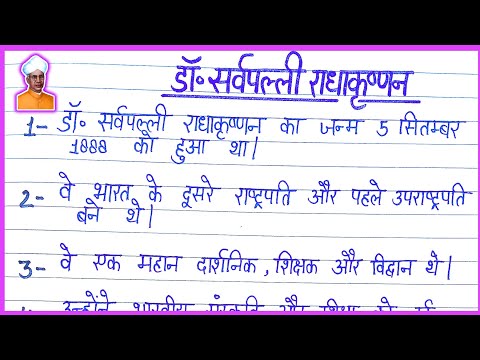 डॉ॰ सर्वपल्ली राधाकृष्णन
1- डॉ॰ सर्वपल्ली राधाकृष्णन का जन्म 5 सितम्बर
1888 को हुआ था।
2- वे भारत के दूसरे राष्ट्रपति और पहले उपराष्ट्रपति
बने थे।
3- वे एक महान दार्शनिक, शिक्षक और विद्वान थे।
उन्होंने भारतीय संस्कृति और शिक्षा को